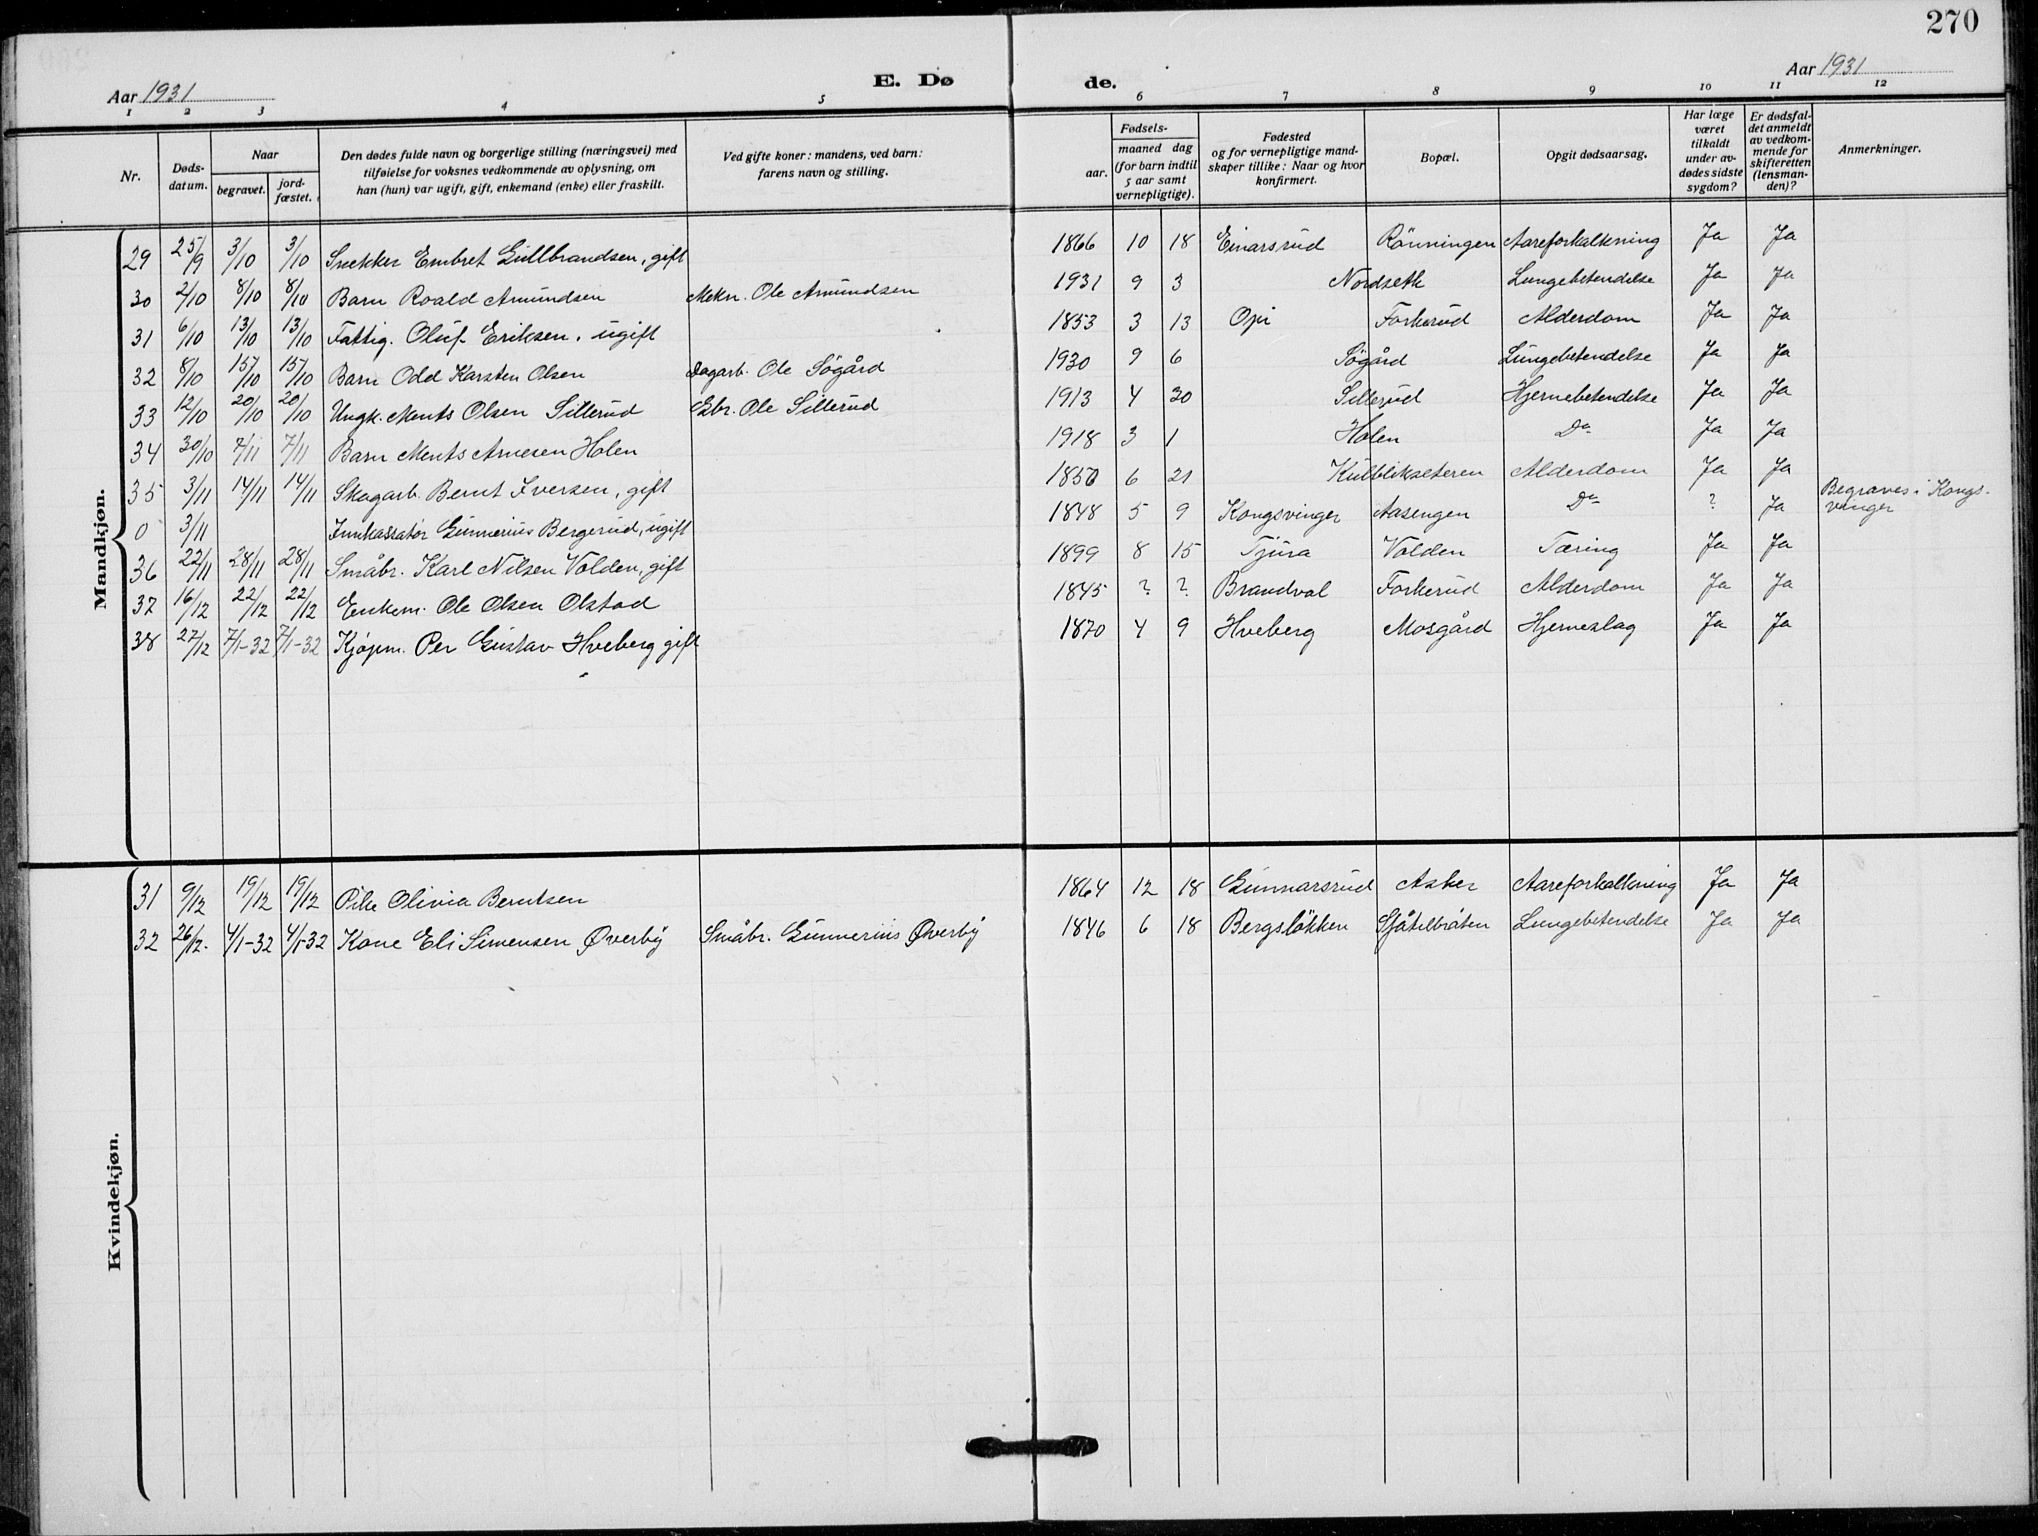 270
Aar 1931 E. Dø de. Aar 1931
1 2 3 4 5 6 7 8 9 10 11 12
Nr. Døds-datum. Naar begravet. jord-fæstet. Den dødes fulde navn og borgerlige stilling (næringsvei) med tilføielse for voksnes vedkommende av oplysning, om han (hun) var ugift, gift, enkemand (enke) eller fraskilt. Ved gifte koner: mandens, ved barn: farens navn og stilling. Fødsels- aar. maaned dag (for barn indtil 5 aar samt vernepligtige). Fødested og for vernepligtige mand-skaper tillike: Naar og hvor konfirmert. Bopæl. Opgit dødsaarsag. Har læge været tilkaldt under av-dødes sidste sygdom? Er dødsfal-det anmeldt av vedkom-mende for skifteretten (lensman-den)? Anmerkninger.
Mandkjøn.
29 25/9 3/10 3/10 Snekker Embret Gullbrandsen, gift 1866 10 18 Einarsrud Rønningen Aareforkalkning Ja Ja
30 2/10 8/10 8/10 Barn Roald Amundsen Mekn. Ole Amundsen 1931 9 3 Nordseth Lungebetendelse Ja Ja
31 6/10 13/10 13/10 Fattig. Oluf Eriksen. ugift 1853 3 13 Opi Forkerud Alderdom Ja Ja
32 8/10 15/10 15/10 Barn Odd Karsten Olsen Dagarb. Ole Søgård 1930 9 6 Søgård Lungebetendelse Ja Ja
33 12/10 20/10 20/10 Ungk. Ments Olsen Sillerud Gbr. Ole Sillerud 1913 4 30 Sillerud Hjernebetendelse Ja Ja
34 30/10 7/11 7/11 Barn Ments Arnesen Holen 1918 3 1 Holen Do Ja Ja
35 3/11 14/11 14/11 Skogarb. Bernt Iversen, gift 1850 6 21 Kulblikseteren Alderdom Ja Ja
0 3/11 Innkassator Gunnerius Bergerud, ugift 1848 5 9 Kongsvinger Aasengen Do ? Ja Begraves i Kongs-vinger
36 22/11 28/11 28/11 Småbr. Karl Nilsen Volden, gift 1899 8 15 Tjura Volden Tæring Ja Ja
37 16/12 22/12 22/12 Enkem. Ole Olsen Olstad 1845 ? ? Brandval Forkerud Alderdom Ja Ja
38 27/12 7/1-32 7/1-32 Kjøpm. Per Gustav Hveberg gift 1870 4 9 Hveberg Mosgård Hjerneslag Ja Ja
Kvindekjøn.
31 9/12 19/12 19/12 Pike Olivia Berntsen 1864 12 18 Gunnarsrud Asker Aareforkalkning Ja Ja
32 26/12. 4/1-32 4/1-32 Kone Eli Simensen Øverby Småbr. Gunnerius Øverby 1846 6 18 Bergsløkken Lungebetendelse Ja Ja